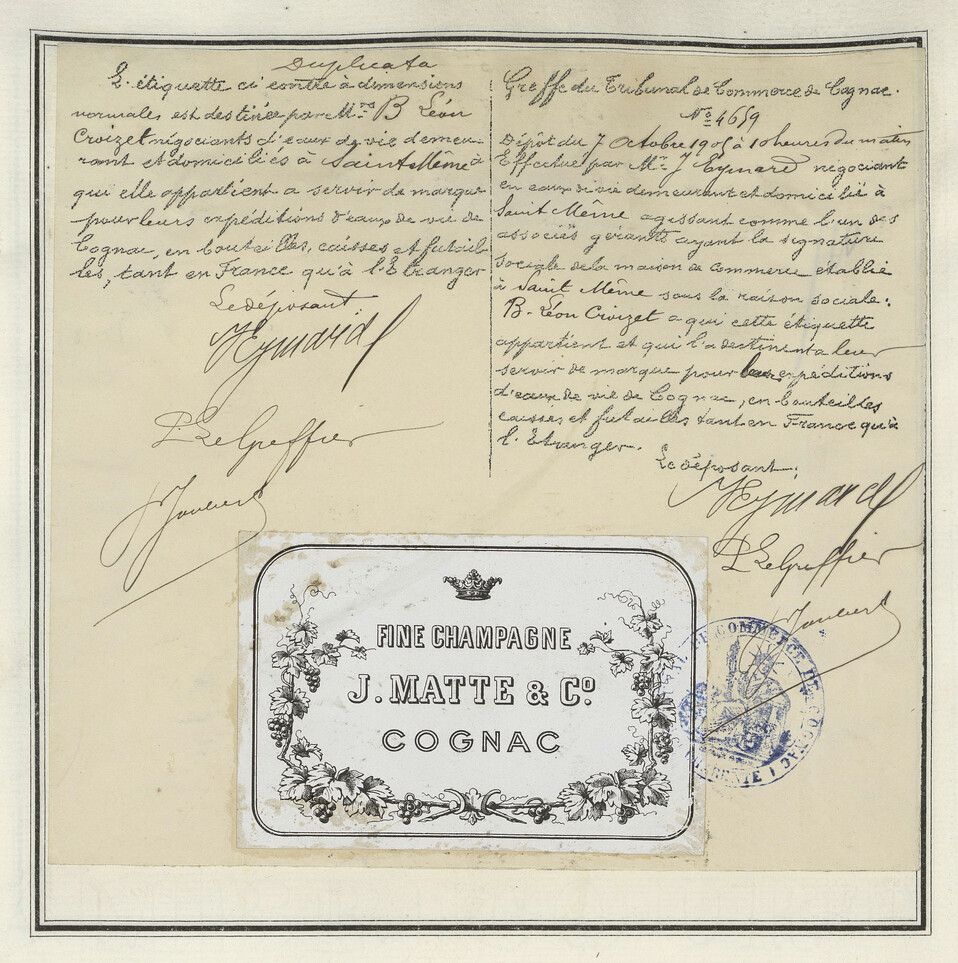 Duplicata
L'étiquette ci contre à dimensions
normales est destinée par Mrs B Léon
Croizet négociants d'eaux de vie demeu-
rant et domiciliés à Saint Même à
qui elle appartient a servir de marque
pour leurs expéditions d'eaux de vie de
Cognac, en bouteilles, caisses et futail
les, tant en France qu'à l'Etranger
Le déposant
JEymard
P Le Greffier
Joubert
Greffe du Tribunal de Commerce de Cognac.
No 4659
Dépôt du 7 Octobre 1905 à 10 heures du matin
Effectué par Mr J Eymard négociant
en eaux de vie demeurant et domicilié à
Saint Même agissant comme l'un des
associés gérants ayant la signature
sociale de la maison de commerce établie
à Saint Même sous la raison sociale:
B. Léon Croizet a qui cette étiquette
appartient et qui l'a destinent a leur
servir de marque pour leurs expéditions
d'eaux de vie de Cognac, en bouteilles
caisses et futailles tant en France qu'à
l'Etranger.
Le déposant.
JEymard
P Le Greffier
Joubert
FINE CHAMPAGNE
J. MATTE & Co
COGNAC
DE COMMERCE DE COGNAC